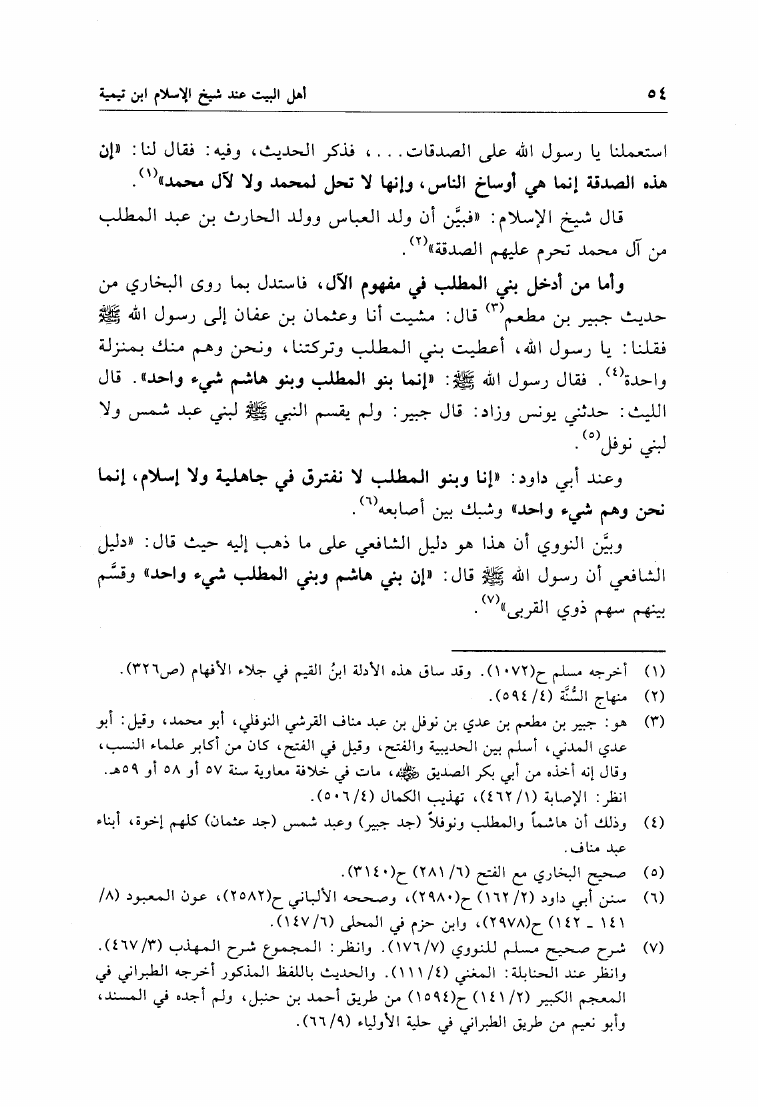 ٥٤
أهل البيت عند شيخ الإسلام ابن تيمية
استعملنا يا رسول الله على الصدقات...، فذكر الحديث، وفيه: فقال لنا: «إن
هذه الصدقة إنما هي أوساخ الناس، وإنها لا تحل لمحمد ولا لآل محمد»(١).
قال شيخ الإسلام: «فبيَّن أن ولد العباس وولد الحارث بن عبد المطلب
من آل محمد تحرم عليهم الصدقة»(٢).
وأما من أدخل بني المطلب في مفهوم الآل، فاستدل بما روى البخاري من
حديث جبير بن مطعم(٣) قال: مشيت أنا وعثمان بن عفان إلى رسول الله ﷺ
فقلنا: يا رسول الله، أعطيت بني المطلب وتركتنا، ونحن وهم منك بمنزلة
واحدة(٤). فقال رسول الله ﷺ: «إنما بنو المطلب وبنو هاشم شيء واحد». قال
الليث: حدثني يونس وزاد: قال جبير: ولم يقسم النبي ﷺ لبني عبد شمس ولا
لبني نوفل(٥).
وعند أبي داود: «إنا وبنو المطلب لا نفترق في جاهلية ولا إسلام، إنما
نحن وهم شيء واحد» وشبك بين أصابعه(٦).
وبيَّن النووي أن هذا هو دليل الشافعي على ما ذهب إليه حيث قال: «دليل
الشافعي أن رسول الله ﷺ قال: «إن بني هاشم وبني المطلب شيء واحد» وقسَّم
بينهم سهم ذوي القربى»(٧).
(١) أخرجه مسلم ح(١٠٧٢). وقد ساق هذه الأدلة ابنُ القيم في جلاء الأفهام (ص٣٢٦).
(٢) منهاج السُّنَّة (٤/ ٥٩٤).
(٣) هو: جبير بن مطعم بن عدي بن نوفل بن عبد مناف القرشي النوفلي، أبو محمد، وقيل: أبو
عدي المدني، أسلم بين الحديبية والفتح، وقيل في الفتح، كان من أكابر علماء النسب،
وقال إنه أخذه من أبي بكر الصديق رضي الله عنه، مات في خلافة معاوية سنة ٥٧ أو ٥٨ أو ٥٩هـ.
انظر: الإصابة (١/ ٤٦٢)، تهذيب الكمال (٤/ ٥٠٦).
(٤) وذلك أن هاشماً والمطلب ونوفلاً (جد جبير) وعبد شمس (جد عثمان) كلهم إخوة، أبناء
عبد مناف.
(٥) صحيح البخاري مع الفتح (٦/ ٢٨١) ح(٣١٤٠).
(٦) سنن أبي داود (٢/ ١٦٢) ح(٢٩٨٠)، وصححه الألباني ح(٢٥٨٢)، عون المعبود (٨/
١٤١ ـ ١٤٢) ح(٢٩٧٨)، وابن حزم في المحلى (٦/ ١٤٧).
(٧) شرح صحيح مسلم للنووي (٧/ ١٧٦). وانظر: المجموع شرح المهذب (٣/ ٤٦٧).
وانظر عند الحنابلة: المغني (٤/ ١١١). والحديث باللفظ المذكور أخرجه الطبراني في
المعجم الكبير (٢/ ١٤١) ح(١٥٩٤) من طريق أحمد بن حنبل، ولم أجده في المسند،
وأبو نعيم من طريق الطبراني في حلية الأولياء (٩/ ٦٦).